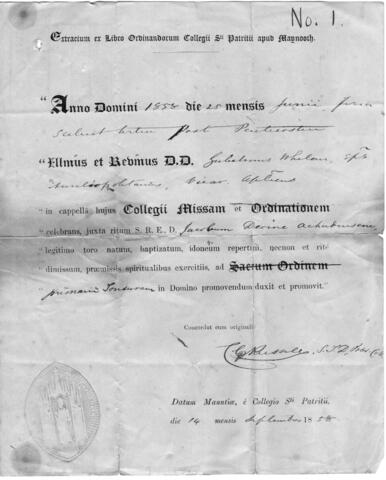 No. 1.
Extractum ex Libro Ordinandorum Collegii Sti Patritii apud Maynooth.
"Anno Domini 1858 die 25 mensis Junii feria
post Pentecosten
"Illm̃us et Revm̃us D.D. Gulielmus Whelan, Eps̃
Vicar. Aplicus
"in cappella hujus Collegii Missam et Ordinationem
celebrans, juxta ritum S. R. E. D. Jacobum Devine Achadensem
legitimo toro natum, baptizatum, idoneum repertum, necnon et rite
dimissum, præmissis spiritualibus exercitiis, ad Sacrum Ordinem
primam Tonsuram in Domino promovendum duxit et promovit."
Concordat cum originali
C W Russell S.T.D. Præs Col
Datum Manutiæ, è Collegio Sti Patritii,
die 14 mensis Septembris 1858